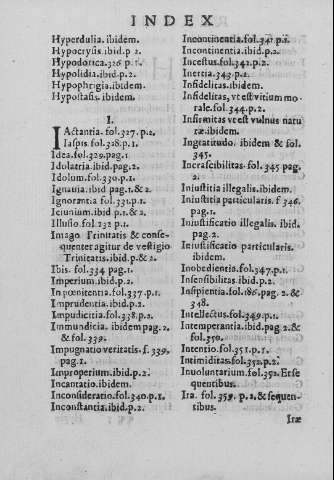 INDEX
Hyperdulia. ibidem.
Hypocrysis. ibid. p. 2.
Hypodorica. 326 p. 1.
Hypolidia. ibid. p. 2.
Hypophrigia. ibidem.
Hypostasis. ibidem.
I.
IActantia. fol. 327. p. 2.
Iaspis. fol. 328. p. 1.
Idea. fol. 329. pag. 1
Idolatria. ibid. pag. 2.
Idolum. fol. 330. p. 1.
Ignauia. ibid pag. 1. & 2.
Ignorantia fol. 331. p. 1.
Ieiunium ibid p. 1. & 2.
Illusio. fol. 232 p. 1.
Imago Trinitatis & conse-
quenter agitur de vestigio
Trinitatis. ibid. p. & 2.
Ibis. fol. 334 pag. 1.
Imperium. ibid. p. 2.
Inpœnitentia. fol. 337. p. 1.
Imprudentia. ibid. p. 2.
Impudicitia. fol. 338. p. 2.
Immundicia. ibidem pag. 2.
& fol. 339.
Impugnatio veritatis. f. 339.
pag. 1.
Improperium. ibid. p. 2.
Incantatio. ibidem.
Inconsideratio. fol. 340. p. 1.
Inconstantia. ibid. p. 2.
Incontinentia. fol. 341. p. 1.
Incontinentia. ibid. p. 2.
Incestus. fol. 342. p. 2.
Inertia. 343. p. 2.
Infidelitas. ibidem.
Infidelitas, vt est vitium mo-
rale. fol. 344. p. 2.
Infirmitas vt est vulnus natu
ræ. ibidem.
Ingratitudo. ibidem & fol.
345.
Incrascibilitas. fol. 345 pag.
2.
Iniustitia illegalis. ibidem.
Iniustitia particularis. f 346.
pag. 1.
Iniustificatio illegalis. ibid.
pag. 2.
Iniustificatio particularis.
ibidem.
Inobedientis. fol. 347. p. 1.
Insensibilitas. ibid. p. 2.
Insipientia. fol. 186. pag. 2. &
348.
Intellectus. fol. 349. p. 1.
Intemperantia. ibid. pag 2. &
fol. 350.
Intentio. fol. 351. p. 1.
Intimiditas. fol. 352. p. 2.
Inuoluntarium. fol. 352. Et se
quentibus.
Ira. fol. 359. p. 2, & sequen-
tibus.
Iræ